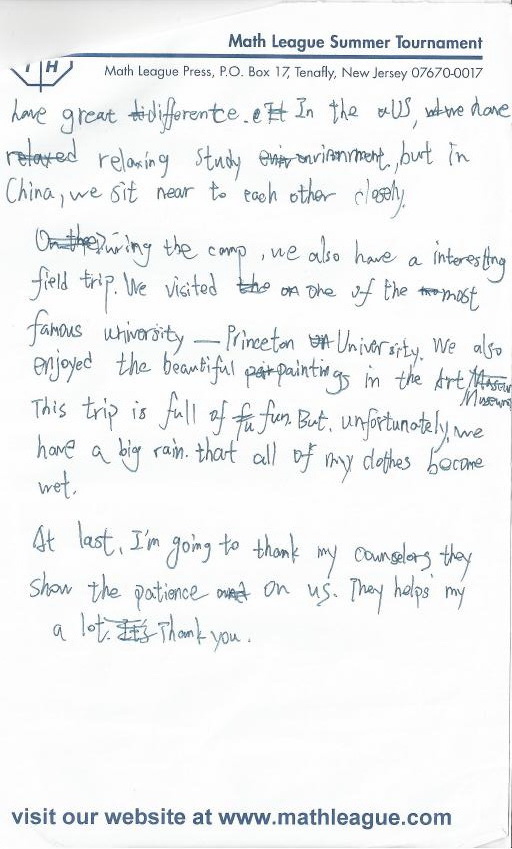 Math League Summer Tournament
Math League Press, P.O. Box 17, Tenafly, New Jersey 07670-0017
have great difference. In the US, we have
relaxed relaxing study envirnment, but in
China, we sit near to each other closely.
On the During the camp, we also have a interesting
field trip. We visited the on one of the most
famous university — Princeton University. We also
enjoyed the beautiful paintings in the Art
Museum
This trip is full of fu fun. But, unfortunately, we
have a big rain. that all of my clothes become
wet.
At last, I'm going to thank my counselors they
show the patience on us. They helps my
a lot. It's Thank you.
visit our website at www.mathleague.com